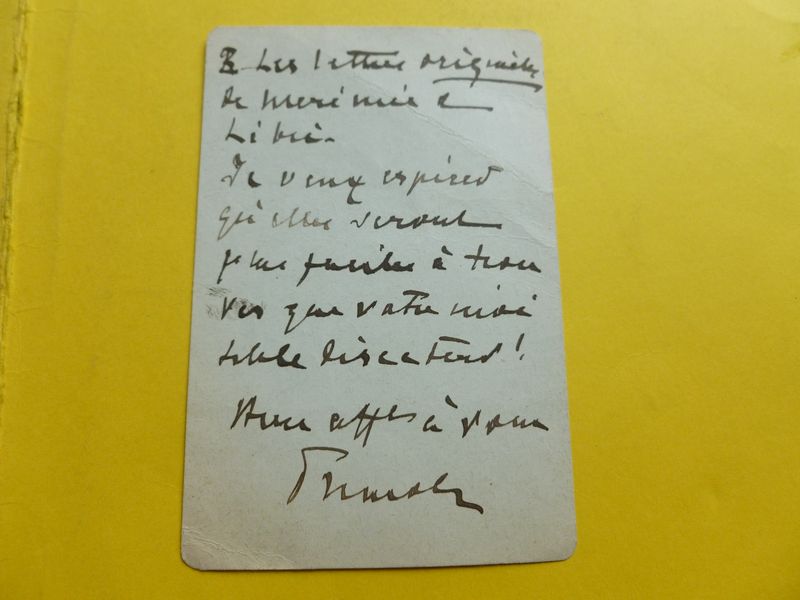 Les lettres originales
de Mérimée à
Libri.
Je veux espérer
qu'elles seront
plus faciles à trou
ver que votre
Discaterd!
affes à vous
Primoli